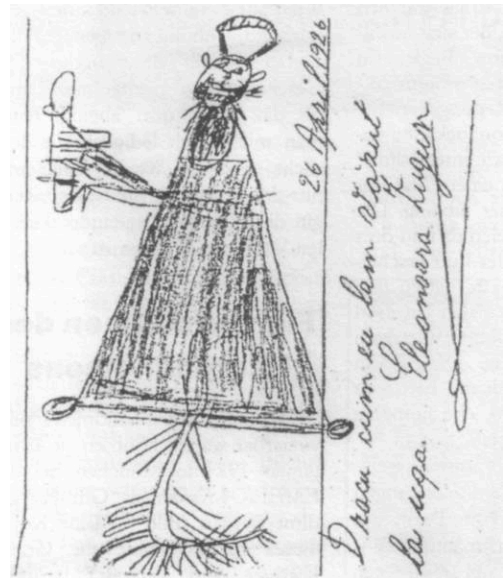 26 April 1926
Dracu cum eu lam vazut
Eu
la uşa Eleonora Zugun